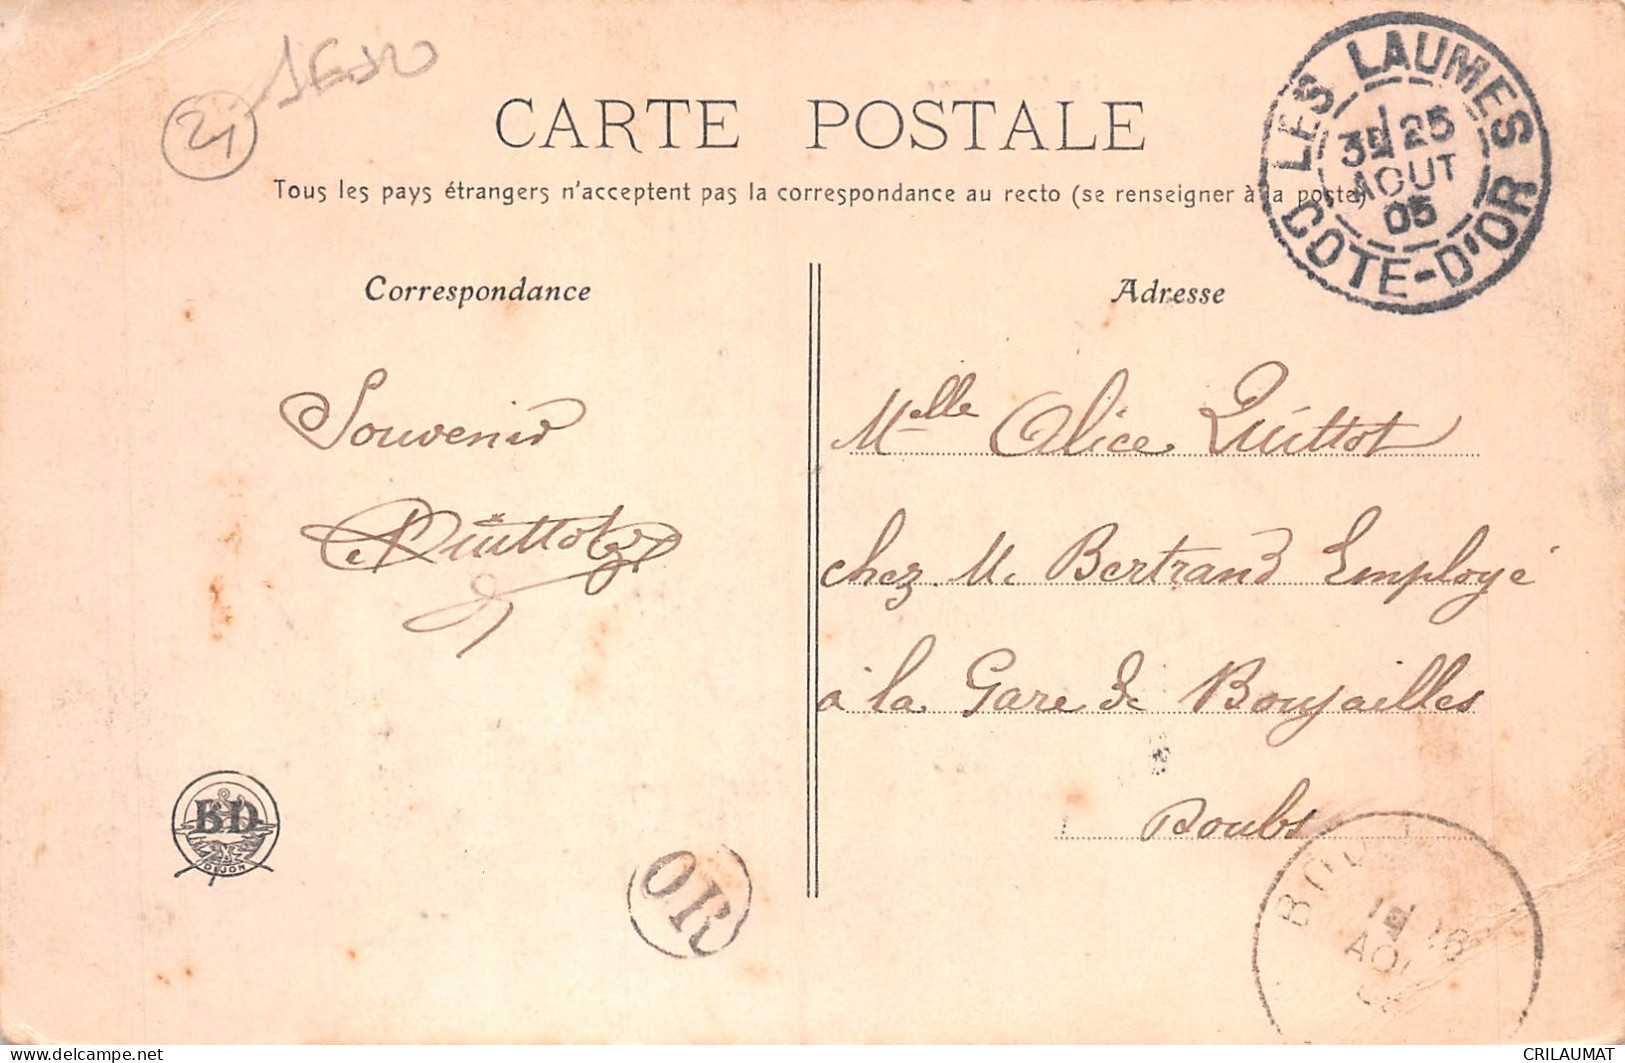 21
CARTE POSTALE
Tous les pays étrangers n'acceptent pas la correspondance au recto (se renseigner à la poste)
LES LAUMES
3E 25
AOUT
05
COTE-D'OR
Correspondance
Adresse
Souvenir
Quittot
Melle Alice Quittot
chez M. Bertrand Employé
à la Gare de Boujailles
Doubs
B D
DIJON
OR
BOU
1E 26
AOU
delcampe.net
CRILAUMAT